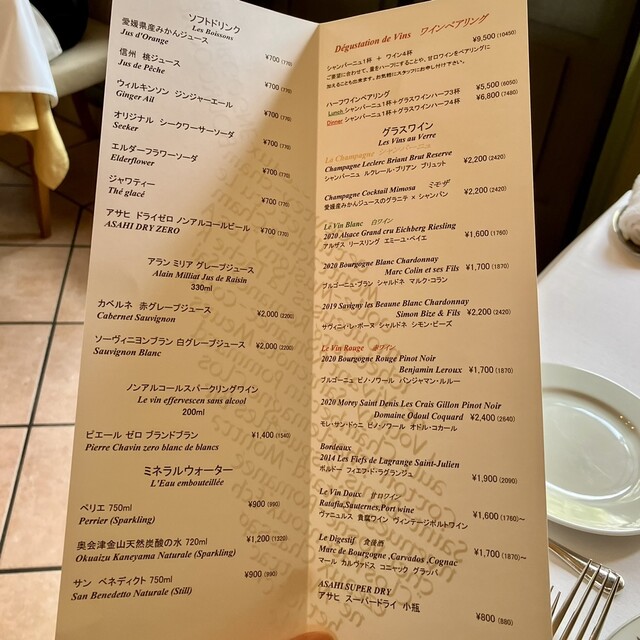 ソフトドリンク
Les Boissons
愛媛県産みかんジュース
Jus d'Orange ¥700 (770)
信州 桃ジュース
Jus de Pêche ¥700 (770)
ウィルキンソン ジンジャーエール
Ginger Ail ¥700 (770)
オリジナル シークワーサーソーダ
Seeker ¥700 (770)
エルダーフラワーソーダ
Elderflower ¥700 (770)
ジャワティー
Thé glacé ¥700 (770)
アサヒ ドライゼロ ノンアルコールビール
ASAHI DRY ZERO ¥700 (770)
アラン ミリア グレープジュース
Alain Milliat Jus de Raisin
330ml
カベルネ 赤グレープジュース
Cabernet Sauvignon ¥2,000 (2200)
ソーヴィニヨンブラン 白グレープジュース
Sauvignon Blanc ¥2,000 (2200)
ノンアルコールスパークリングワイン
Le vin effervescen sans alcool
200ml
ピエール ゼロ ブランドブラン ¥1,400 (1540)
Pierre Chavin zero blanc de blancs
ミネラルウォーター
L'Eau embouteillée
ペリエ 750ml ¥900 (990)
Perrier (Sparkling)
奥会津金山天然炭酸の水 720ml ¥1,200 (1320)
Okuaizu Kaneyama Naturale (Sparkling)
サン ベネディクト 750ml ¥900 (990)
San Benedetto Naturale (Still)
Dégustation de Vins ワインペアリング
¥9,500 (10450)
シャンパーニュ1杯 + ワイン4杯
ご要望に合わせて、量をハーフにすることや、甘口ワインをペアリングに
加えることも出来ます。お気軽にスタッフにお申し付け下さい。
ハーフワインペアリング
Lunch シャンパーニュ1杯+グラスワインハーフ3杯 ¥5,500 (6050)
Dinner シャンパーニュ1杯+グラスワインハーフ4杯 ¥6,800 (7480)
グラスワイン
Les Vins au Verre
La Champagne シャンパーニュ
Champagne Leclerc Briant Brut Reserve ¥2,200 (2420)
シャンパーニュ ルクレール・ブリアン ブリュット
Champagne Cocktail Mimosa ミモザ ¥2,200 (2420)
愛媛産みかんジュースのグラニテ × シャンパン
Le Vin Blanc 白ワイン
2020 Alsace Grand cru Eichberg Riesling ¥1,600 (1760)
アルザス リースリング エミーユ・ベイエ
2020 Bourgogne Blanc Chardonnay
Marc Colin et ses Fils ¥1,700 (1870)
ブルゴーニュ・ブラン シャルドネ マルク・コラン
2019 Savigny les Beaune Blanc Chardonnay
Simon Bize & Fils ¥2,200 (2420)
サヴィニィ・レ・ボーヌ シャルドネ シモン・ビーズ
Le Vin Rouge 赤ワイン
2020 Bourgogne Rouge Pinot Noir
Benjamin Leroux ¥1,700 (1870)
ブルゴーニュ ピノ・ノワール バンジャマン・ルルー
2020 Morey Saint Denis Les Crais Gillon Pinot Noir
Domaine Odoul Coquard ¥2,400 (2640)
モレ・サン・ドゥニ ピノ・ノワール オドル・コカール
Bordeaux
2014 Les Fiefs de Lagrange Saint-Julien ¥1,900 (2090)
ボルドー フィエフ・ド・ラグランジュ
Le Vin Doux 甘口ワイン
Ratafia,Sauternes,Port wine ¥1,600 (1760)~
ヴァニュルス 貴腐ワイン ヴィンテージポルトワイン
Le Digestif 食後酒
Marc de Bourgogne ,Carvados ,Cognac ¥1,700 (1870)~
マール カルヴァドス コニャック グラッパ
ASAHI SUPER DRY
アサヒ スーパードライ 小瓶 ¥800 (880)